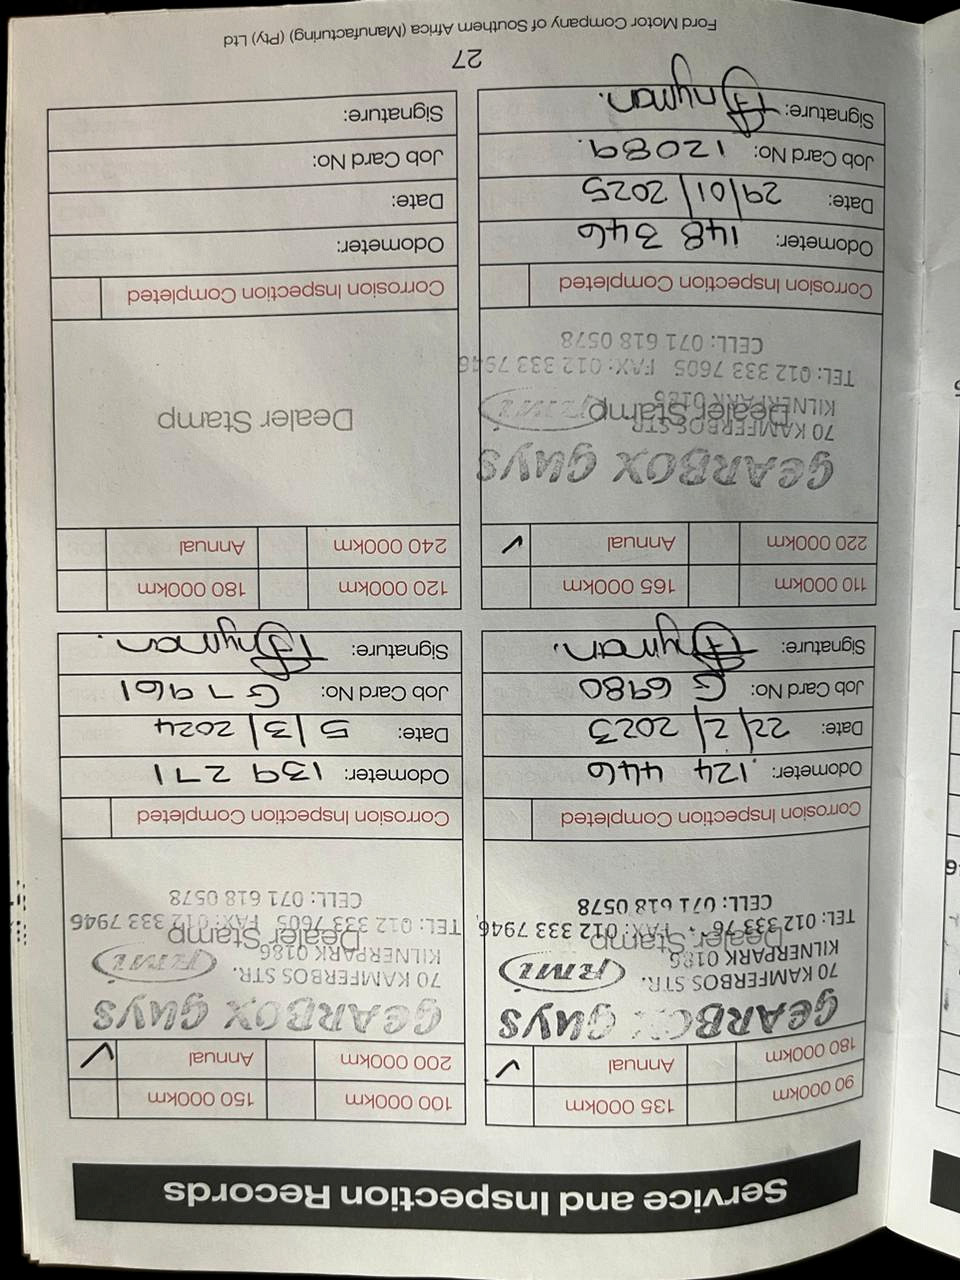 Service and Inspection Records
90 000km 135 000km
180 000km Annual ✓
GEARBOX GUYS
70 KAMFERBOS STR.
KILNERPARK 0186
RMI
Dealer Stamp
TEL: 012 333 76 FAX: 012 333 7946
CELL: 071 618 0578
Corrosion Inspection Completed
Odometer: 124 446
Date: 22/2/2023
Job Card No: G 6980
Signature:
100 000km 150 000km
200 000km Annual ✓
GEARBOX GUYS
70 KAMFERBOS STR.
KILNERPARK 0186
RMI
Dealer Stamp
TEL: 012 333 7605 FAX: 012 333 7946
CELL: 071 618 0578
Corrosion Inspection Completed
Odometer: 139 271
Date: 5/3/2024
Job Card No: G7961
Signature:
110 000km 165 000km
220 000km Annual ✓
GEARBOX GUYS
70 KAMFERBOS STR.
KILNERPARK 0186
RMI
Dealer Stamp
TEL: 012 333 7605 FAX: 012 333 7946
CELL: 071 618 0578
Corrosion Inspection Completed
Odometer: 148 346
Date: 29/01/2025
Job Card No: 12089.
Signature:
120 000km 180 000km
240 000km Annual
Dealer Stamp
Corrosion Inspection Completed
Odometer:
Date:
Job Card No:
Signature:
27
Ford Motor Company of Southern Africa (Manufacturing) (Pty) Ltd